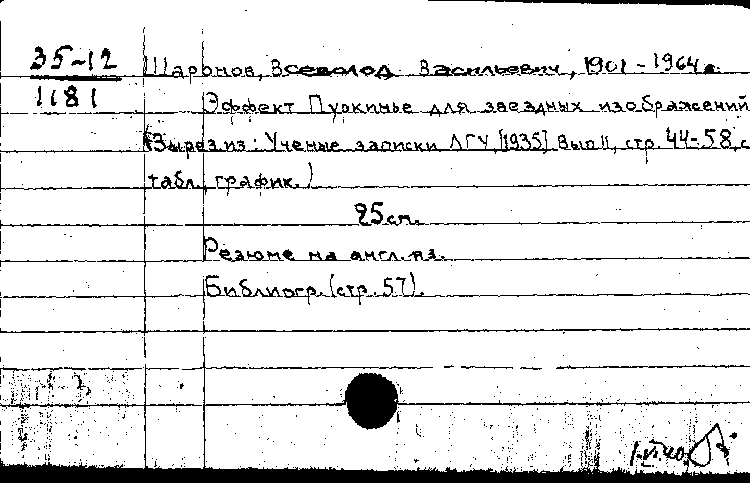 35-12
1181
Шаронов, Всеволод Васильевич, 1901-1964г.
Эффект Пуркинье для звездных изображений
(Вырез.из: Ученые записки ЛГУ, [1935] Вып II, стр. 44-58, с
табл., график.)
25см.
Резюме на англ. яз.
Библиогр. (стр. 57).
1.VI.40.